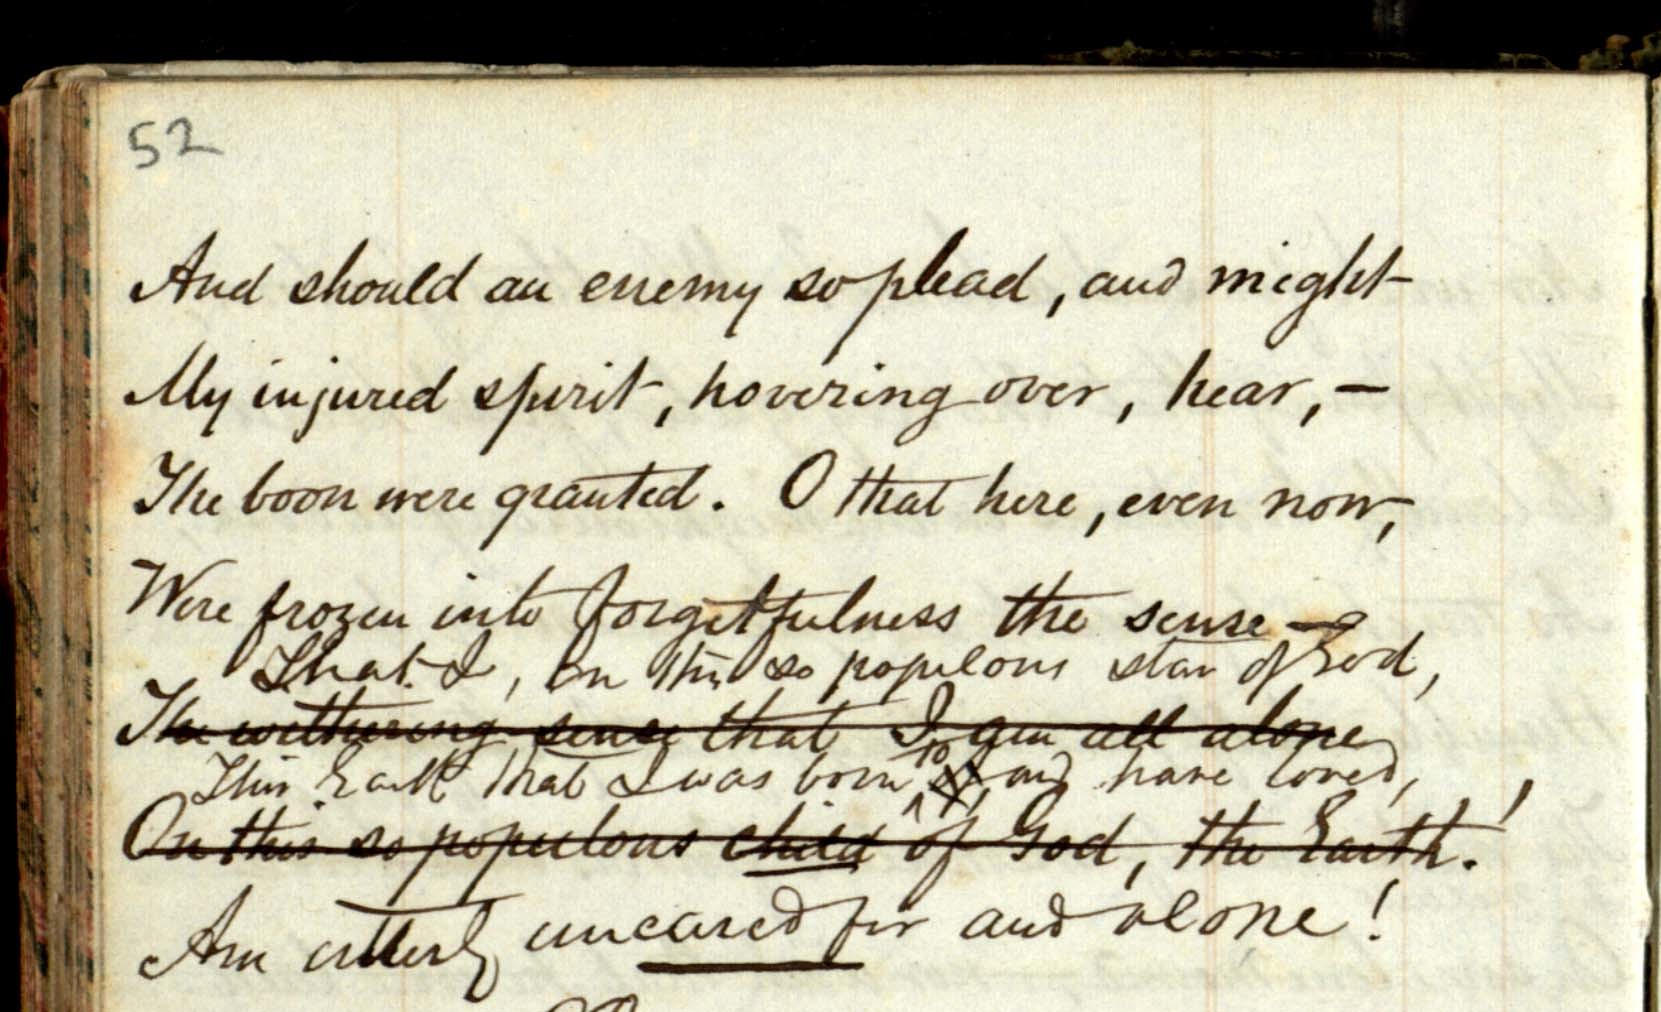 52
And should an enemy so plead, and might
My injured spirit, hovering over, hear, —
The boon were granted. O that here, even now,
Were frozen into forgetfulness the sense —
That I, on this so populous star of God,
The withering sense that I am all alone
This Earth that I was born to, and have loved,
On this so populous child of God, the Earth.!
Am utterly uncared for and alone!